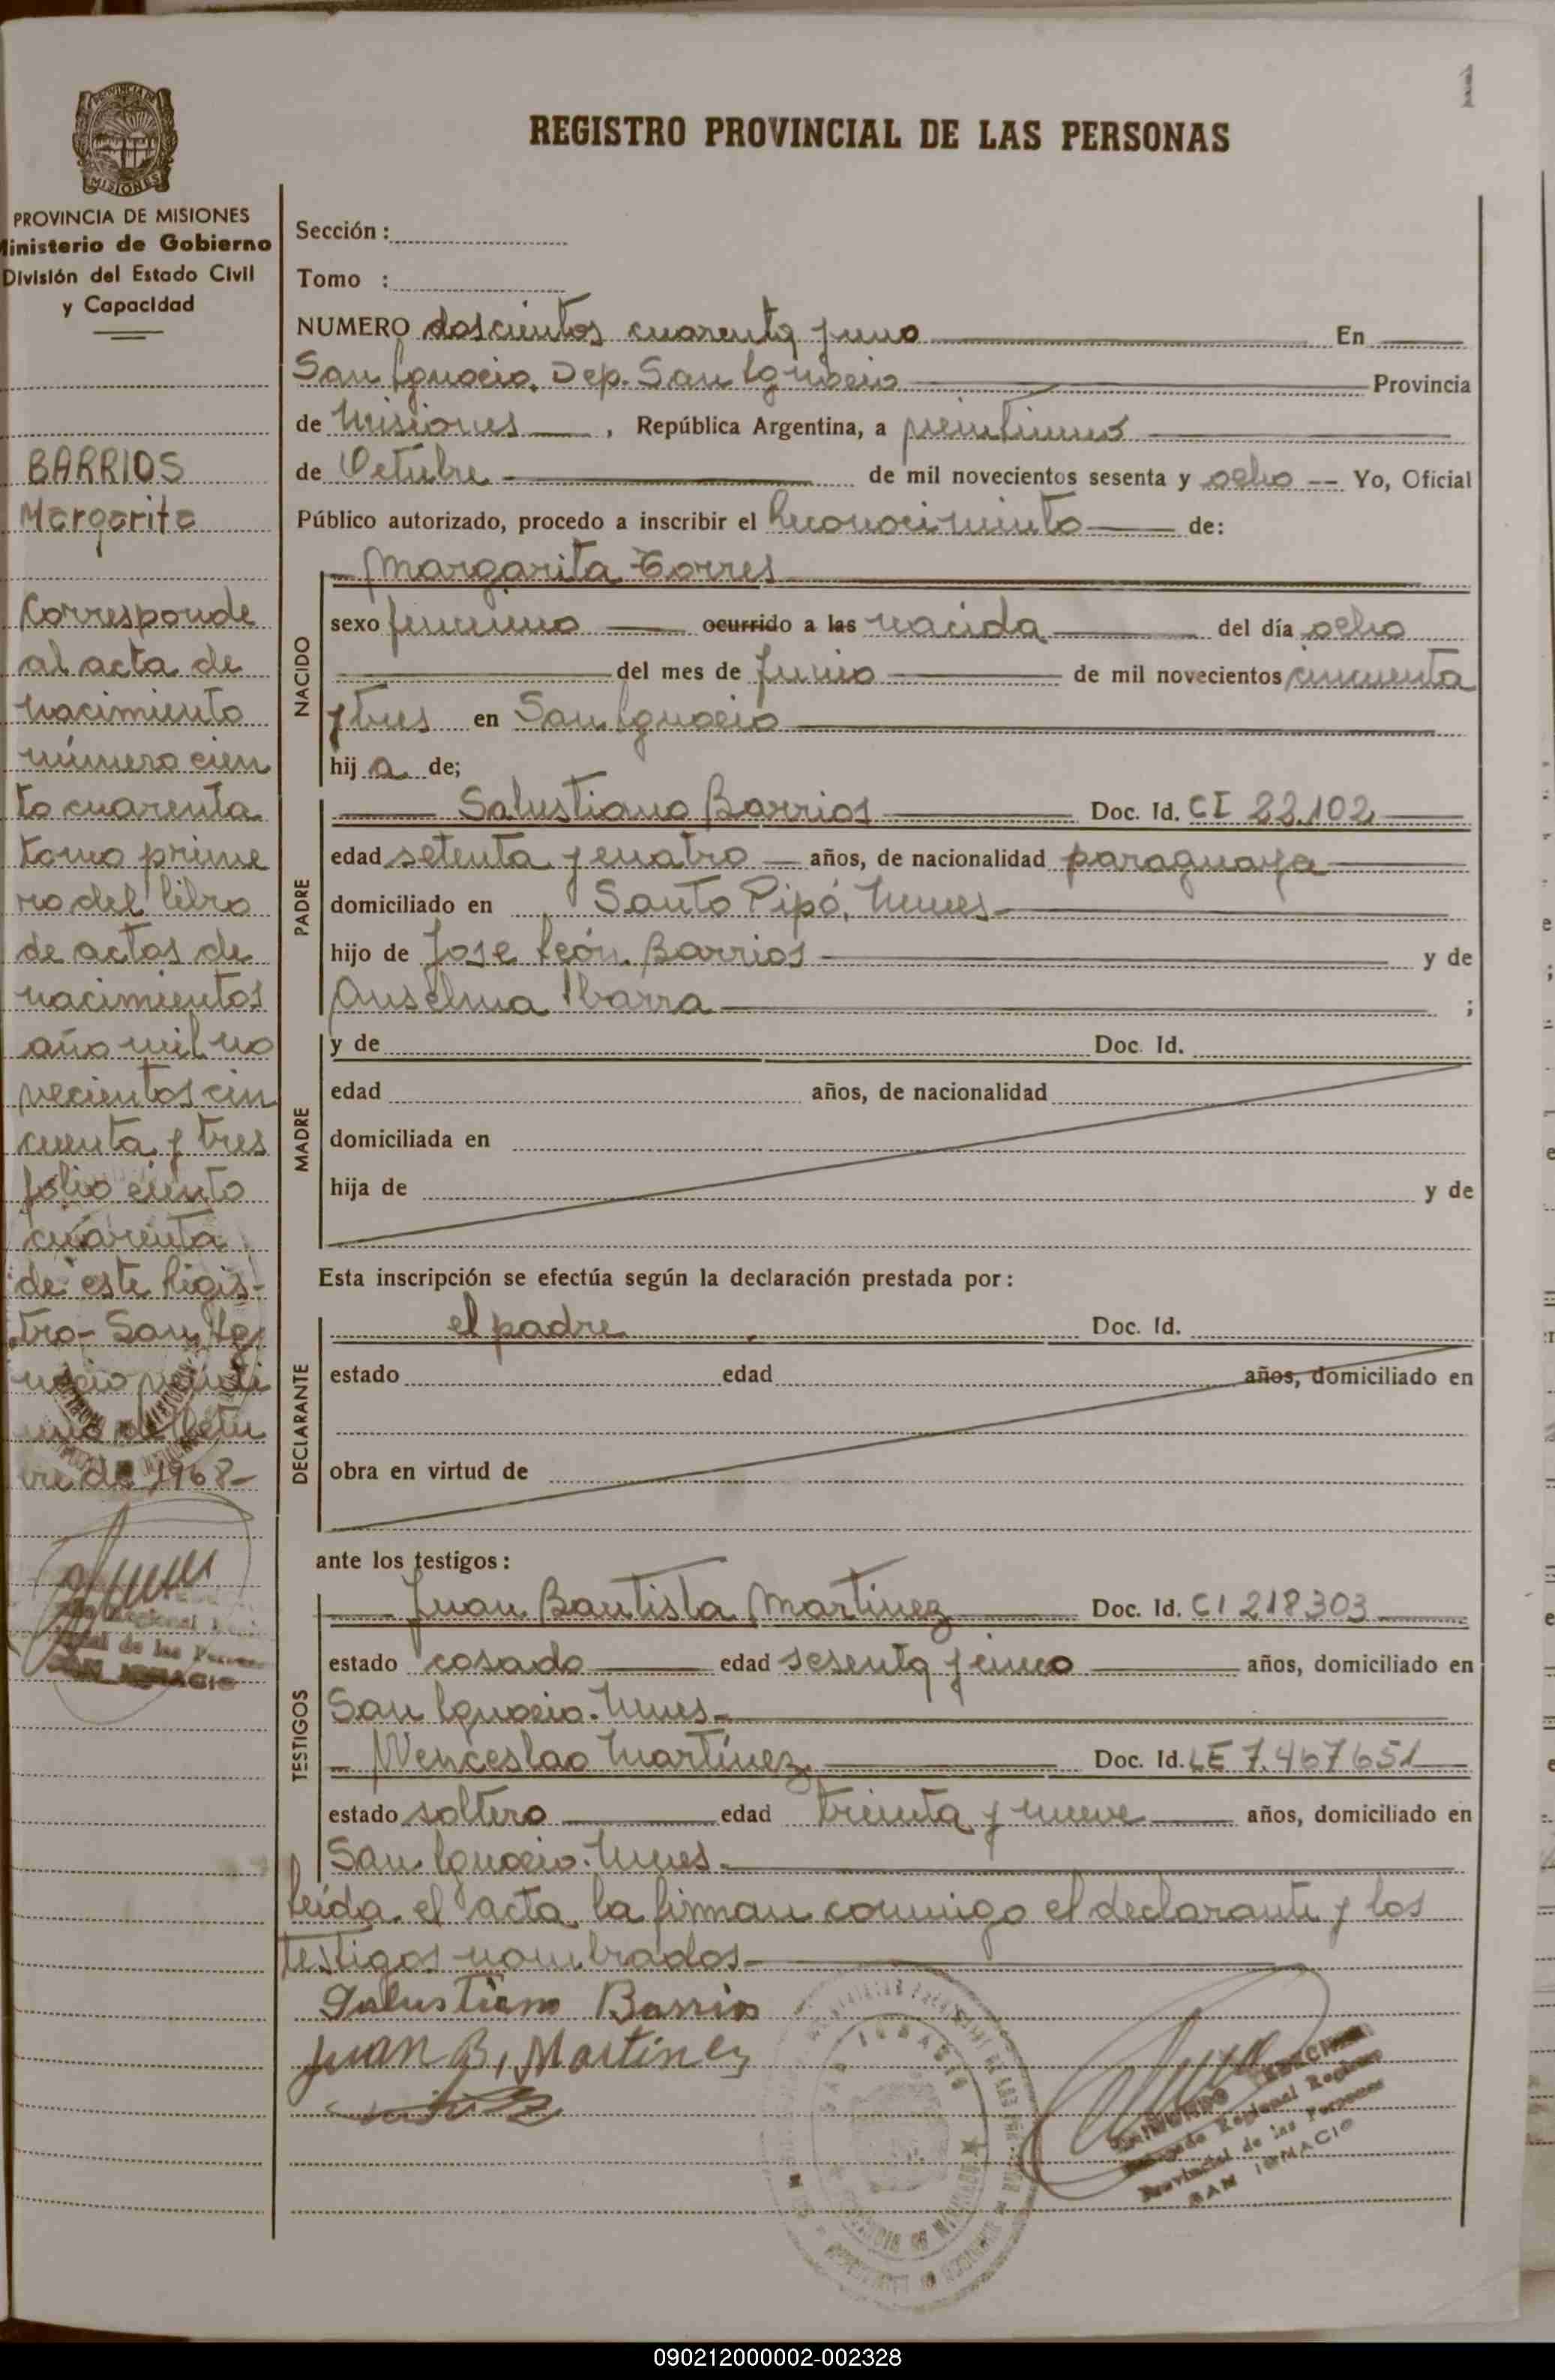 1
REGISTRO PROVINCIAL DE LAS PERSONAS
MISIONES
PROVINCIA DE MISIONES
Ministerio de Gobierno
División del Estado Civil
y Capacidad
BARRIOS
Margarita
Corresponde
al acta de
nacimiento
número cien
to cuarenta
tomo prime
ro del libro
de actas de
nacimientos
año mil no
vecientos cin
cuenta y tres
folio ciento
cuarenta
de este Regis-
tro - San Ig
nacio veinti
uno de Octu
bre de 1968-
SAN IGNACIO
Sección :
Tomo :
NUMERO doscientos cuarenta y uno En
San Ignacio, Dep. San Ignacio Provincia
de Misiones , República Argentina, a veintiuno
de Octubre de mil novecientos sesenta y ocho -- Yo, Oficial
Público autorizado, procedo a inscribir el Reconocimiento de:
NACIDO
Margarita Torres
sexo femenino ocurrido a las nacida del día ocho
del mes de Junio de mil novecientos cincuenta
y tres en San Ignacio
hij a de;
PADRE
Salustiano Barrios Doc. Id. CI 22.102
edad setenta y cuatro años, de nacionalidad paraguaya
domiciliado en Santo Pipó, Mnes
hijo de Jose León Barrios y de
Anselma Ibarra ;
MADRE
y de Doc. Id.
edad años, de nacionalidad
domiciliada en
hija de y de
Esta inscripción se efectúa según la declaración prestada por :
DECLARANTE
el padre Doc. Id.
estado edad años, domiciliado en
obra en virtud de
ante los testigos :
TESTIGOS
Juan Bautista Martinez Doc. Id. CI 218303
estado casado edad sesenta y cinco años, domiciliado en
San Ignacio. Mnes.
Wenceslao Martínez Doc. Id. LE 7.467651
estado soltero edad treinta y nueve años, domiciliado en
San Ignacio. Mnes.
leída el acta la firman conmigo el declarante y los
testigos nombrados
Salustiano Barrios
Juan B. Martinez
Delegado Regional Registro
Provincial de las Personas
SAN IGNACIO
090212000002-002328